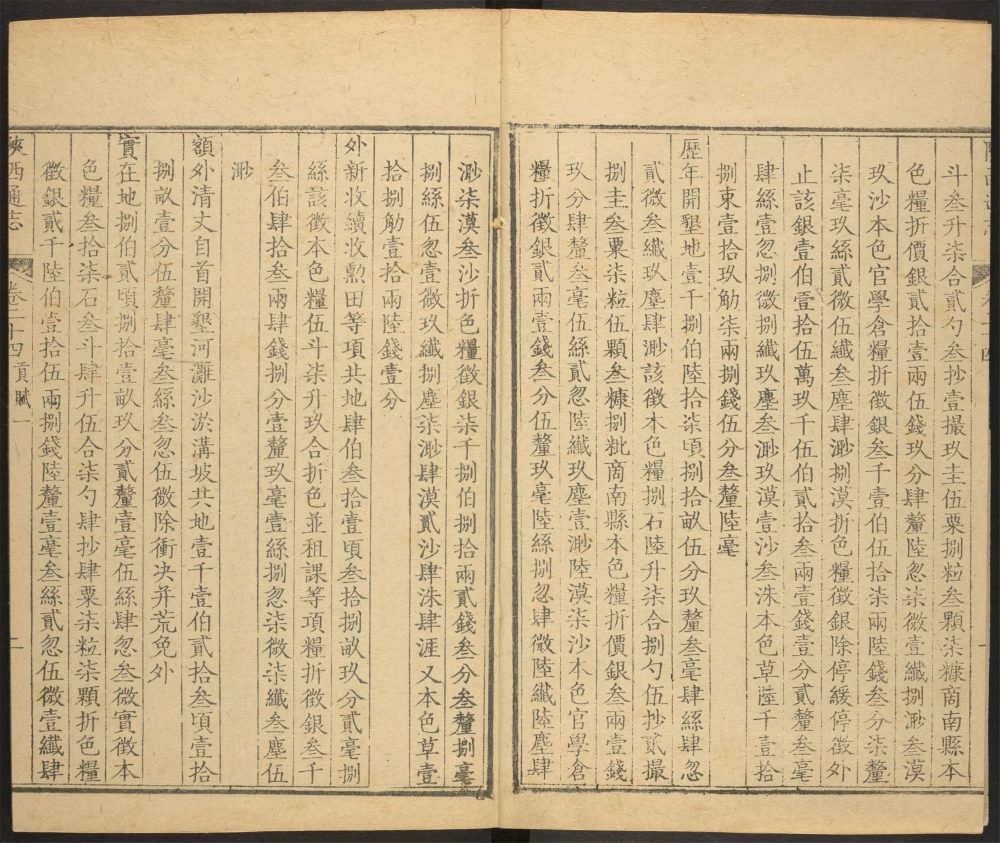 斗叁升柒合貳勺叁抄壹撮玖圭伍粟捌粒叁顆柒糠商南縣本
色糧折價銀貳拾壹兩伍錢玖分肆釐陸忽柒微壹纖捌渺叁漠
玖沙本色官學倉糧折徵銀叁千壹伯伍拾柒兩陸錢叁分柒釐
柒毫玖絲貳微伍纖叁塵肆渺捌漠折色糧徵銀除停緩停徵外
止該銀壹伯壹拾伍萬玖千伍伯貳拾叁兩壹錢壹分貳釐叁毫
肆絲壹忽捌微捌纖玖塵叁渺玖漠壹沙叁洙本色草陸千壹拾
捌束壹拾玖觔柒兩捌錢伍分叁釐陸毫
歷年開墾地壹千捌伯陸拾柒頃捌拾畝伍分玖釐叁毫肆絲肆忽
貳微叁纖玖塵肆渺該徵本色糧捌石陸升柒合捌勺伍抄貳撮
捌圭叁粟柒粒伍顆叁糠捌粃商南縣本色糧折價銀叁兩壹錢
玖分肆釐叁毫伍絲貳忽陸纖玖塵壹渺陸漠柒沙本色官學倉
糧折徵銀貳兩壹錢叁分伍釐玖毫陸絲捌忽肆微陸纖陸塵肆
渺柒漠叁沙折色糧徵銀柒千捌伯捌拾兩貳錢叁分叁釐捌毫
捌絲伍忽壹微玖纖捌塵柒渺肆漠貳沙肆洙肆涯又本色草壹
拾捌觔壹拾兩陸錢壹分
外新收續收勲田等項共地肆伯叁拾壹頃叁拾捌畝玖分貳毫捌
絲該徵本色糧伍斗柒升玖合折色並租課等項糧折徵銀叁千
叁伯肆拾叁兩肆錢捌分壹釐玖毫壹絲捌忽柒微柒纖叁塵伍
渺
額外清丈自首開墾河灘沙淤溝坡共地壹千壹伯貳拾叁頃壹拾
捌畝壹分伍釐肆毫叁絲叁忽伍微除衝决并荒免外
實在地捌伯貳頃捌拾壹畝玖分貳釐壹毫伍絲肆忽叁微實徵本
色糧叁拾柒石叁斗肆升伍合柒勺肆抄肆粟柒粒柒顆折色糧
徵銀貳千陸伯壹拾伍兩捌錢陸釐壹毫叁絲貳忽伍微壹纖肆
陜西通志 卷二十四貢賦一